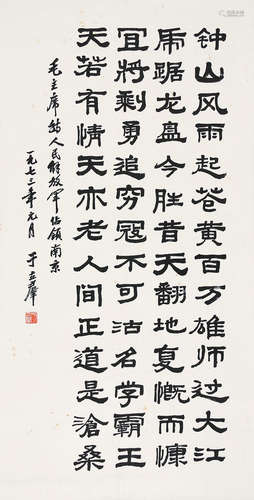 钟山风雨起苍黄百万雄师过大江
虎踞龙盘今胜昔天翻地复慨而慷
宜将剩勇追穷寇不可沽名学霸王
天若有情天亦老人间正道是滄桑
毛主席诗人民解放军佔领南京
一九七三年元月 于立群